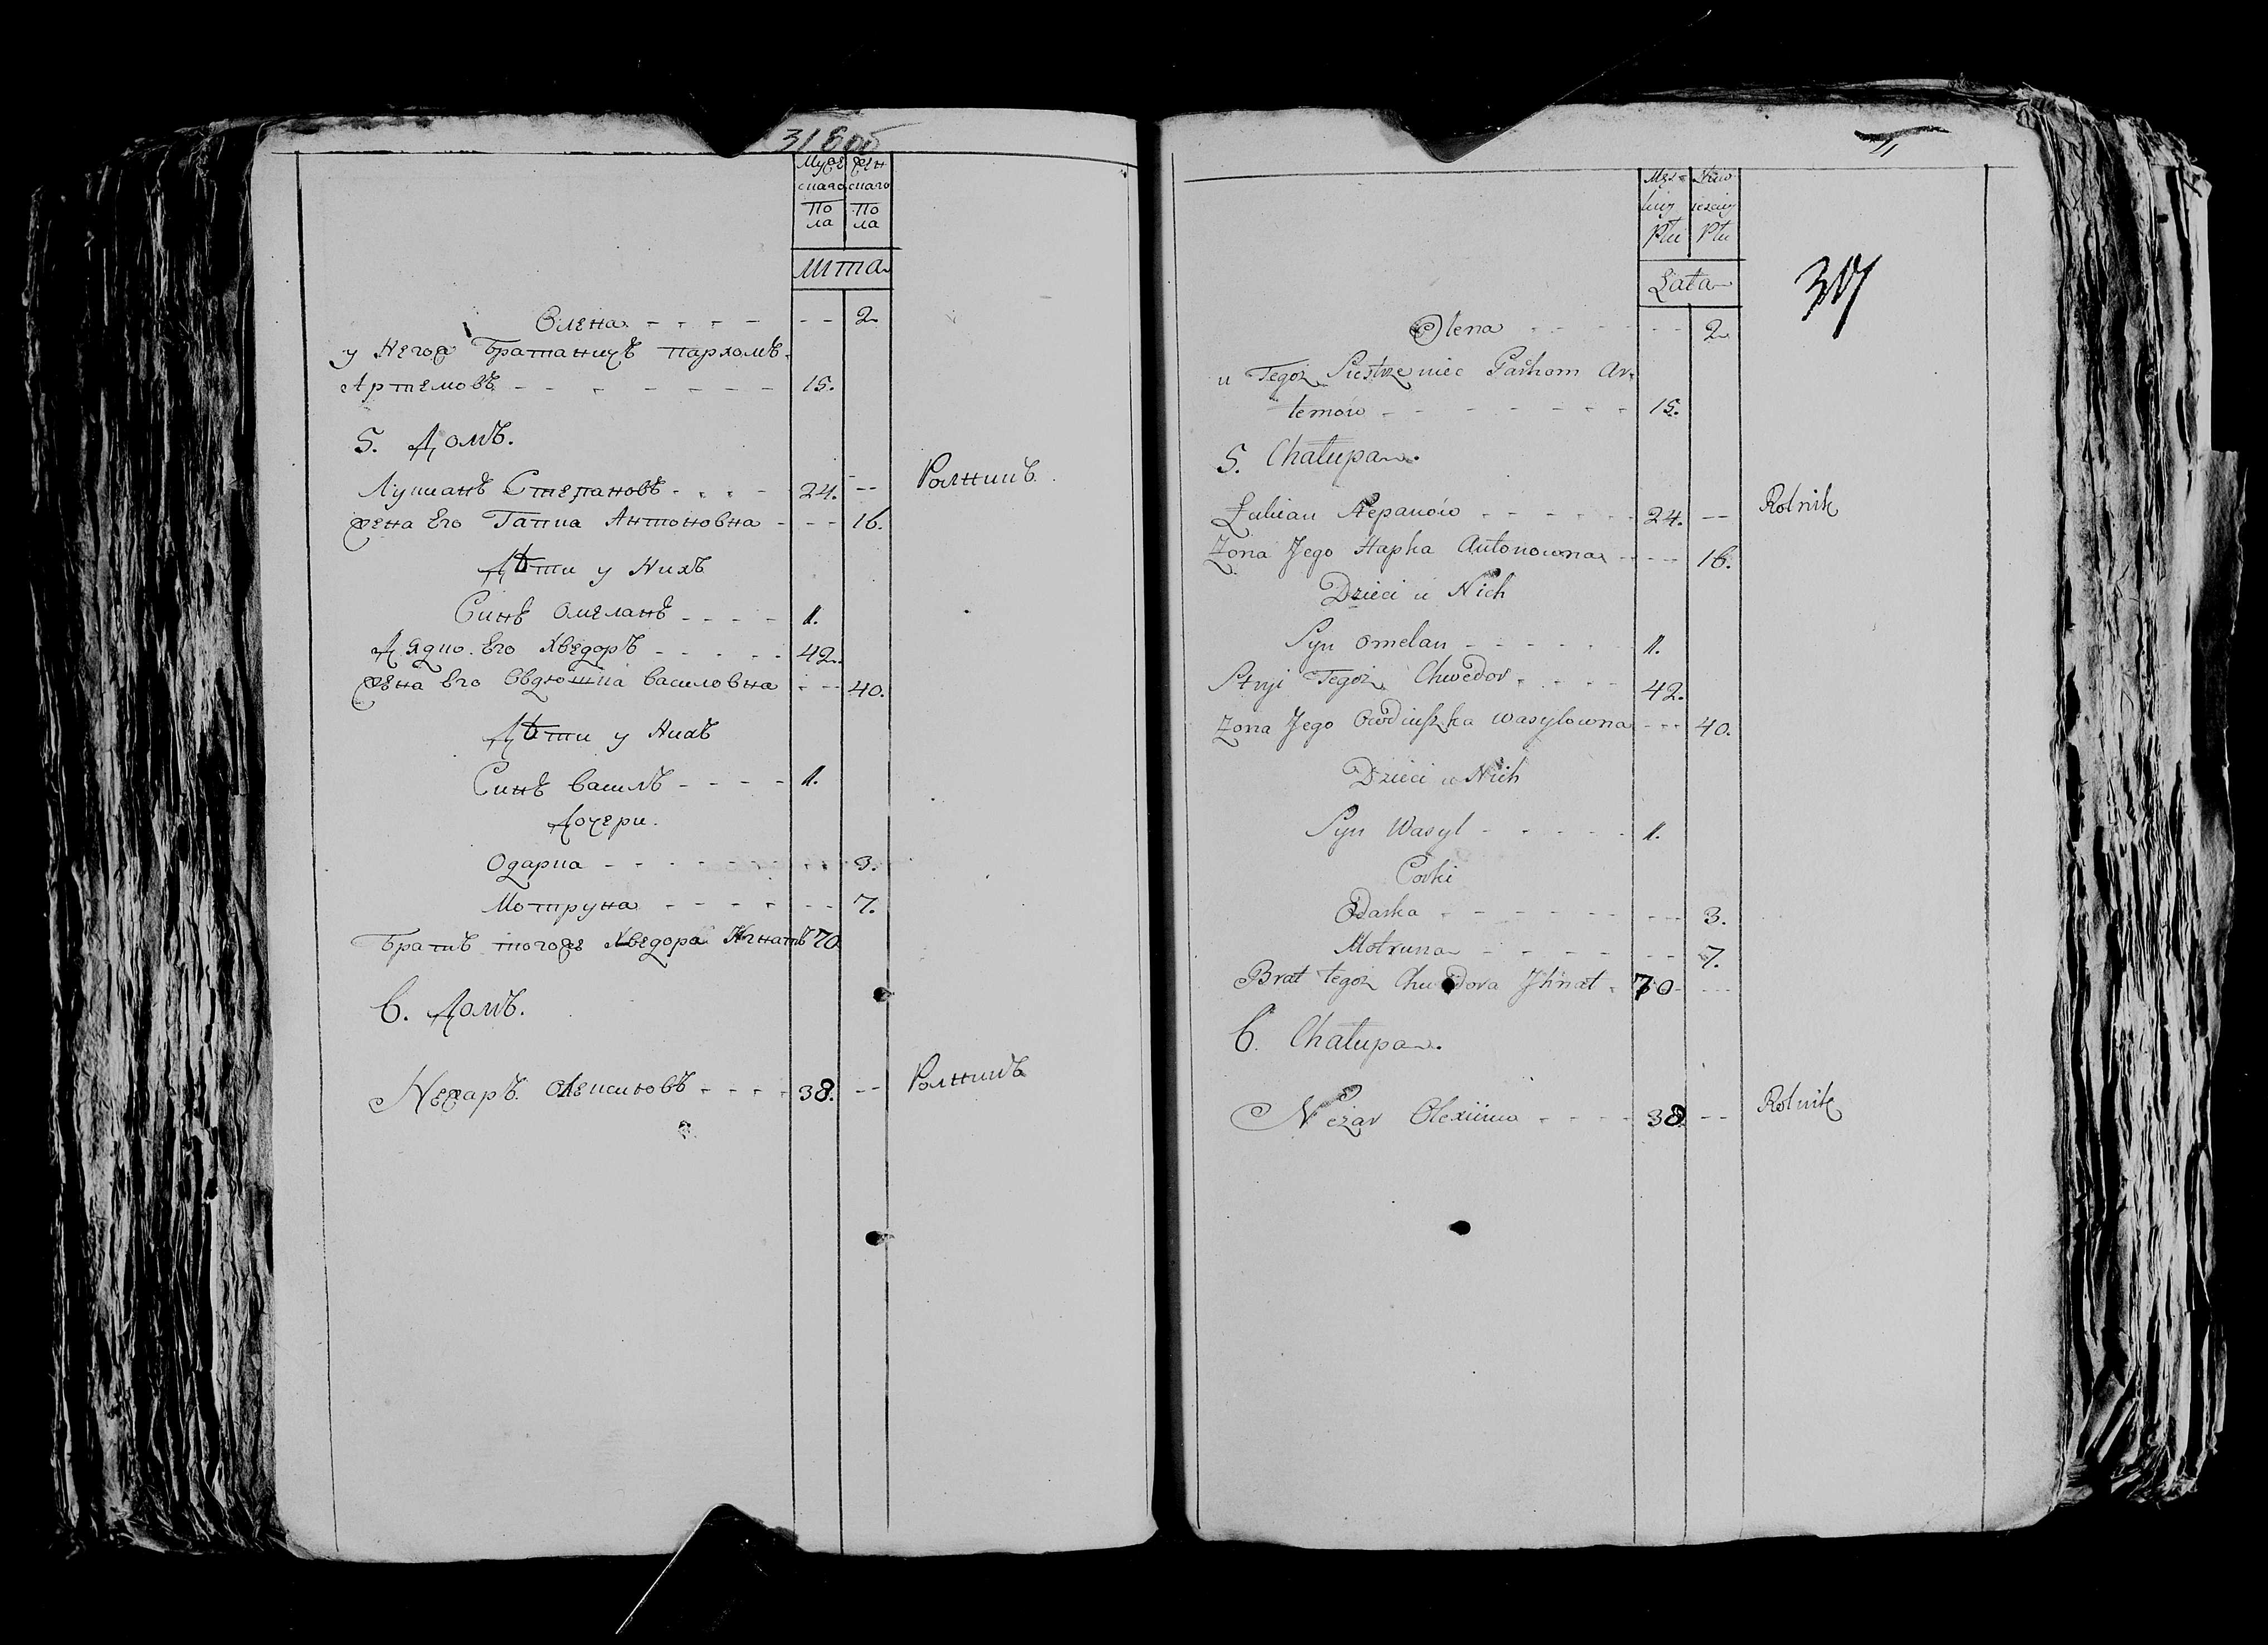 318 об
Мужескаго Пола
Женскаго Пола
Лѣта
Олена - - - - - - 2.
у Негож Братаничъ Пархомъ
Артемовъ - - - - - - 15.
5. Домъ.
Лукианъ Степановъ - - - - 24. -- Ролникъ
Жена Его Гапка Антоновна - - - 16.
Дѣти у Нихъ
Синъ Омеланъ - - - - 1.
Дядко Его Хведоръ - - - - - 42.
Жена Его Овдюшка Василовна - - - 40.
Дѣти у Нихъ
Синъ Василъ - - - - 1.
Дочери.
Одарка - - - - - - - 3.
Мотруна - - - - - - 7.
Братъ тогоже Хведора Игнатъ 70
6. Домъ.
Нежаръ Олексиювъ - - - - 38. -- Ролникъ
Męzkiey Płci
Płci
Łata
Olena - - - - - - 2.
u Tegoż Siestrzeniec Parhom Ar-
temów - - - - - - - 15.
5. Chałupa.
Łukian Stepanów - - - - - - 24. -- Rolnik
Zona Jego Hapka Antonowna - - - - 16.
Dzieci u Nich
Syn Omelan - - - - - - 1.
Stryi Tegoż Chwedor - - - - 42.
Zona Jego Owdiuszka Wasylowna - - - 40.
Dzieci u Nich
Syn Wasyl - - - - - 1.
Corki
Odarka - - - - - - - - 3.
Motruna - - - - - - 7.
Brat tegoż Chwedora Ihnat - 70 - --
6. Chałupa.
Neżar - - - - 38. -- Rolnik